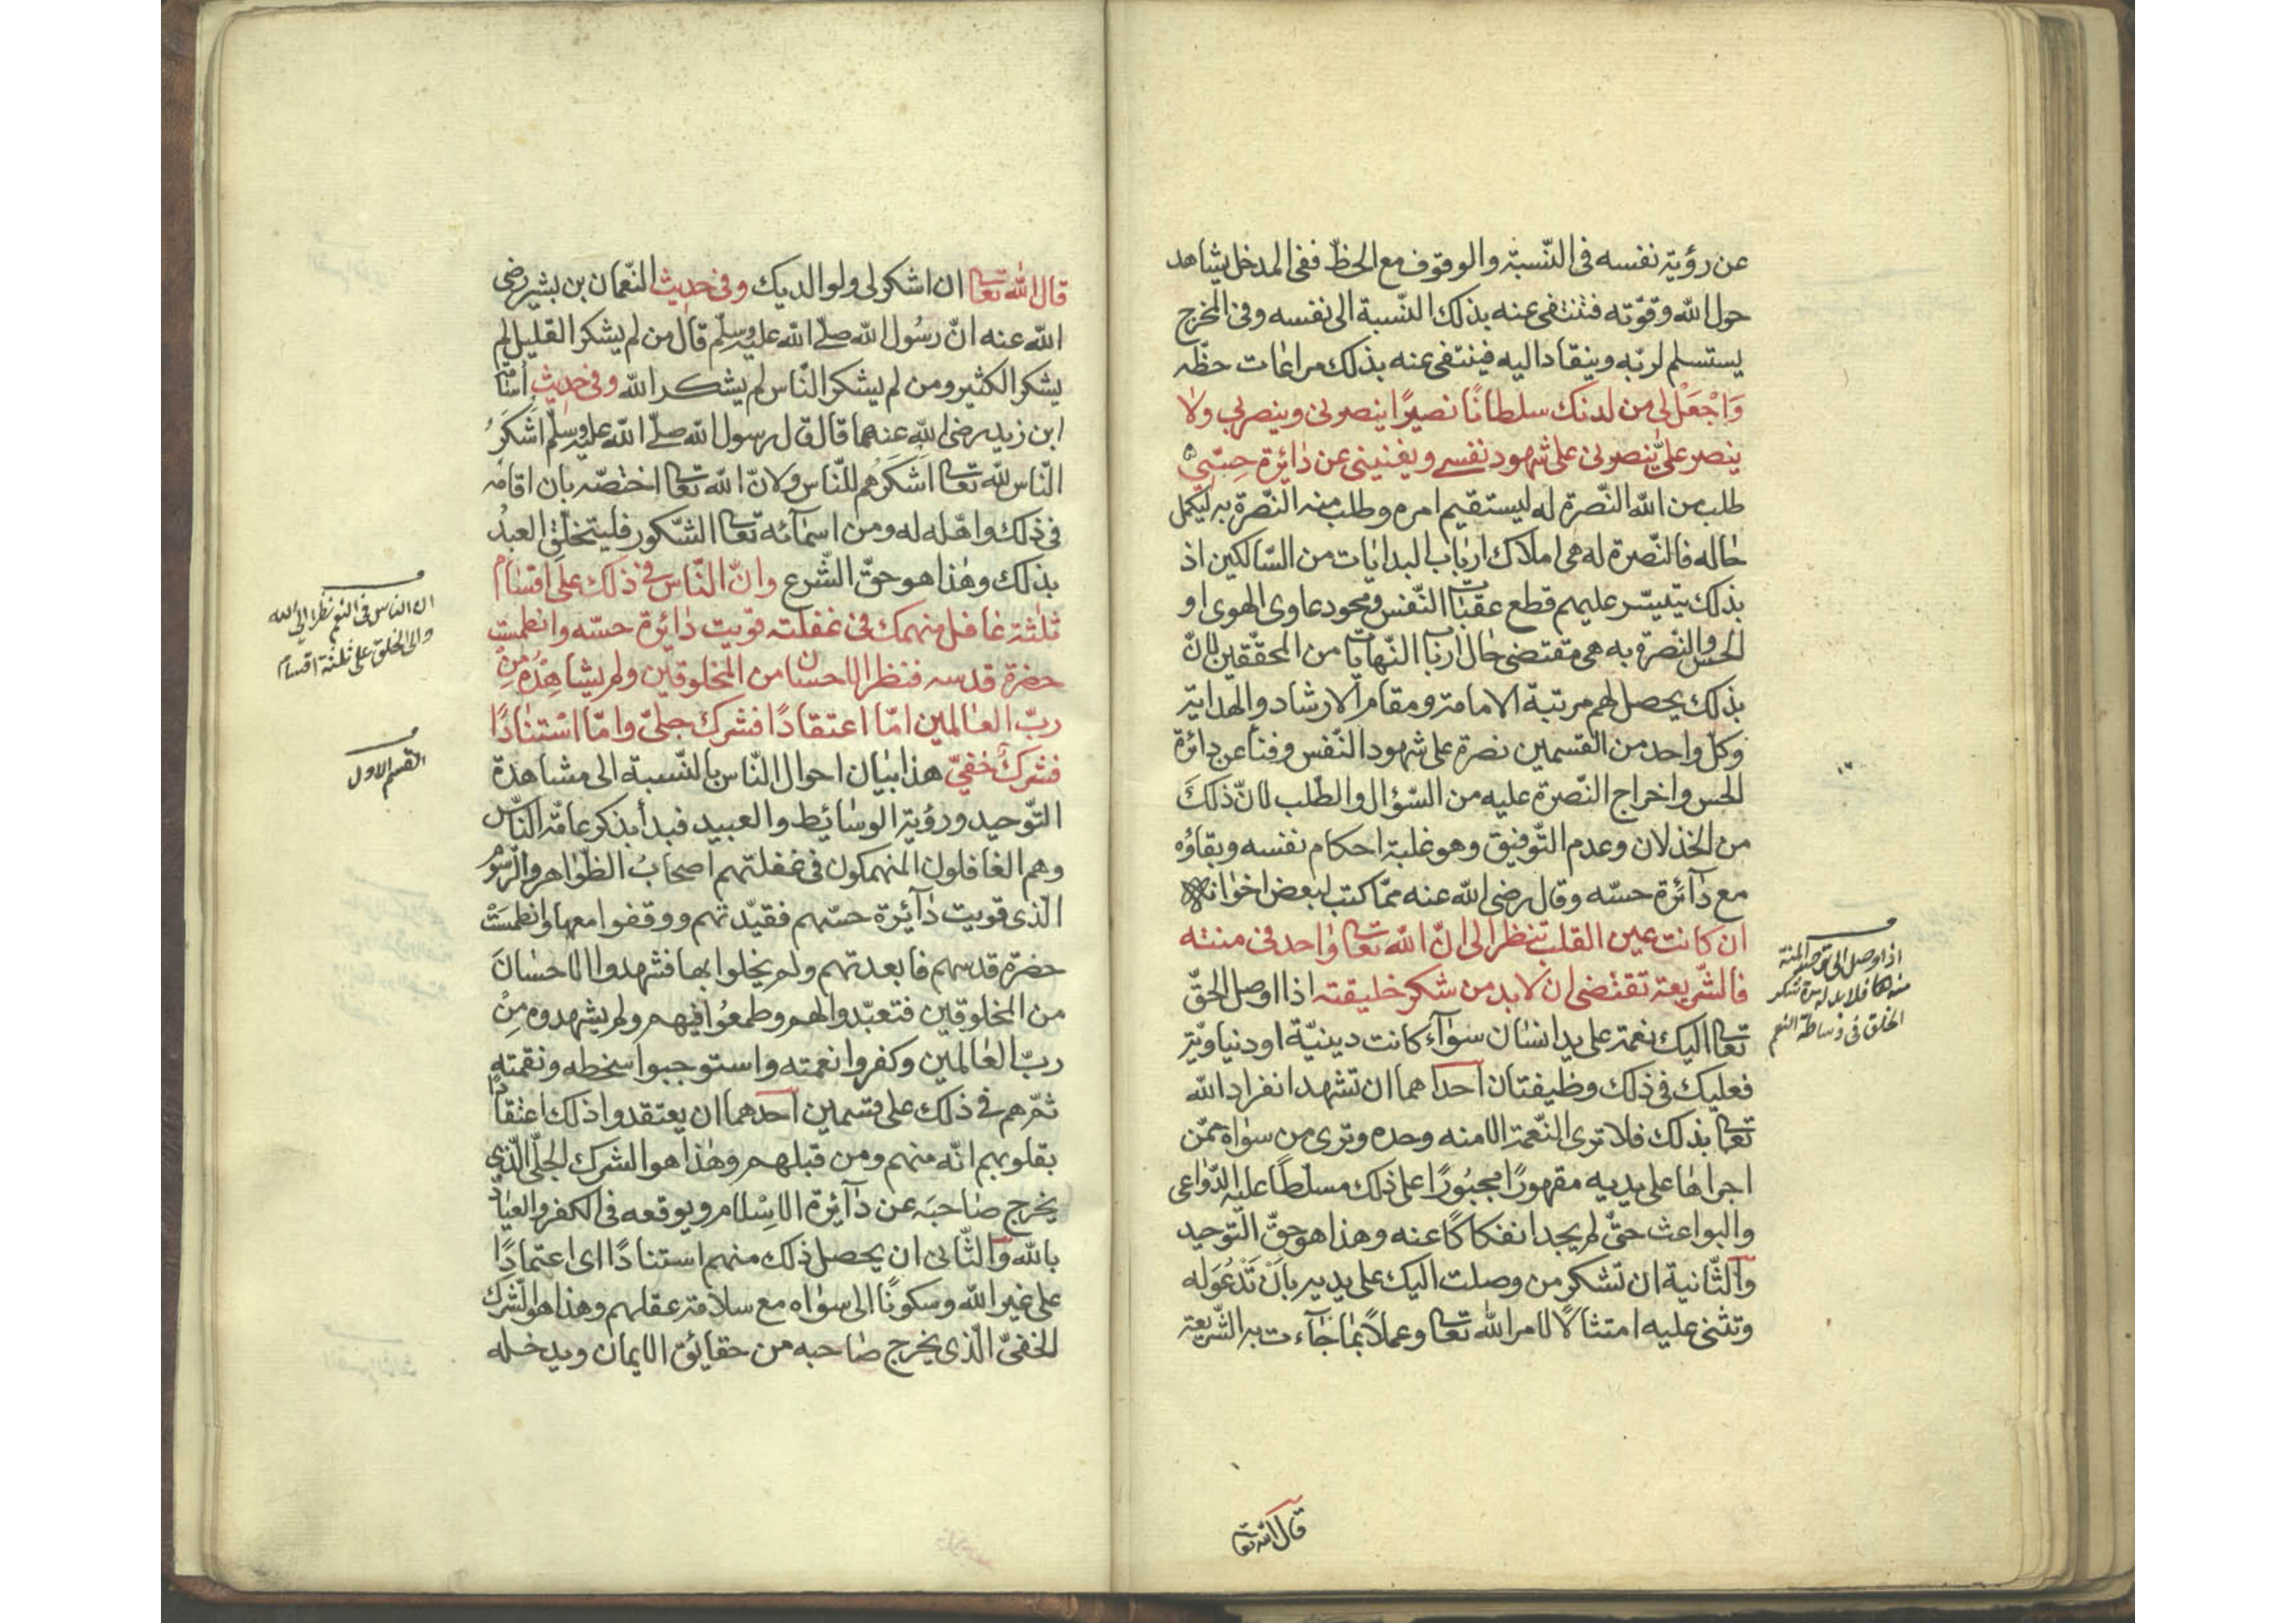 عن رؤية نفسه فى النّسبة والوقوف مع الحظّ ففى المدخل يشاهد
حول الله وقوّته فتنتفى عنه بذلك النّسبة الى نفسه وفى المخرج
يستسلم لربّه وينقاد اليه فينتفى عنه بذلك مراعات حظّه
وَاجْعَلْ لى من لدنك سلطانًا نصيرًا ينصرنى وينصر بى ولا
ينصر علىّ ينصرنى على شهود نفسى ويغنينى عن دائرة حِسّى
طلب من الله النّصرة له ليستقيم امره وطلب منه النّصرة به ليكمل
حاله فالنّصرة له هى املاك ارباب البدايات من السّالكين اذ
بذلك يتيسّر عليهم قطع عقبات النّفس ومحو دعاوى الهوى او
الحس والنّصرة به هى مقتضى حال ارباب النّهايات من المحقّقين لانّ
بذلك يحصل لهم مرتبة الامامة ومقام الارشاد والهداية
وكلّ واحد من القسمين نصرة على شهود النّفس وفنا عن دائرة
الحس واخراج النّصرة عليه من السّؤال والطّلب لانّ ذلك
من الخذلان وعدم التّوفيق وهو غلبة احكام نفسه وبقاؤه
مع دآئرة حسّه وقال رضى الله عنه ممّا كتب لبعض اخوانه
ان كانت عين القلب تنظر الى انّ الله تعالى واحد فى منته
فالشّريعة تقتضى ان لابد من شكر خليقته اذا اوصل الحقّ
تعالى اليك نعمة على يد انسان سوآء كانت دينيّة او دنياويّة
فعليك فى ذلك وظيفتان احداهما ان تشهد انفراد الله
تعالى بذلك فلا ترى النّعمة الا منه وحده وترى من سواه ممّن
اجراها على يديه مقهورًا مجبُورًا على ذلك مسلّطًا عليه الدّواعى
والبواعث حتّى لم يجد انفكاكًا عنه وهذا هو حقّ التّوحيد
والثّانية ان تشكر من وصلت اليك على يديه بانْ تَدْعُوَ له
وتثنى عليه امتثالًا لامر الله تعالى وعملاً بما جآءت به الشّريعة
اذا وصل الى المنة
منه تعالى فلابد له شكر
الخلق فى وساطة النعم
قال الله تعالى
قال الله تعالى ان اشكر لى ولوالديك وفى حديث النّعمان بن بشير رضى
الله عنه انّ رسُول الله صلّى الله عليه وسلّم قال من لم يشكر القليل لم
يشكر الكثير ومن لم يشكر النّاس لم يشكر الله وفى حديث اسامة
ابن زيد رضى الله عنهما قال قال رسول الله صلّى الله عليه وسلّم اَشكَرُ
النّاس لله تعالى اَشكَرُهم للنّاس ولانّ الله تعالى اختصّه بان اقامه
فى ذلك واهّله له ومن اسمآئه تعالى الشّكور فليتخلّق العبدُ
بذلك وهذا هو حقّ الشّرع وانّ النّاس فى ذلك على اقسام
ثلثة غافل منهمك فى غفلته قويت دائرة حسّه وانطمست
حضرة قدسه فنظر الاحسان من المخلوقين ولم يشاهِدْهُ مِنْ
ربّ العالمين امّا اعتقادًا فشرك جلىّ وامّا اسْتنادًا
فشرك خفىّ هذا بيان احوال النّاس بالنّسبة الى مشاهدة
التّوحيد ورؤية الوسائط والعبيد فبدأ بذكر عامّة النّاس
وهم الغافلون المنهمكون فى غفلتهم اصحابُ الظّواهر والرّسوم
الّذى قويت دآئرة حسّهم فقيّدتهم ووقفوا معها وانطمسَتْ
حضرة قدسهم فابعدتهم ولم يخلوا بها فشهدوا الاحسانَ
من المخلوقين فتعبّدوا لهم وطمعُوا فيهم ولم يشهدوه مِنْ
ربّ العالمين وكفروا نعمته واستوجبوا سخطه ونقمته
ثمّ هم فى ذلك على قسمين احدهما ان يعتقدوا ذلك اعتقادًا
بقلوبهم انّه منهم ومن قبلهم وهذا هو الشرك الجلىّ الّذى
يخرج صاحبَه عن دآئرة الاسْلام ويوقعه فى الكفر والعياذ
بالله والثّانى ان يحصل ذلك منهم استنادًا اى اعتمادًا
على غير الله وسكونًا الى سواه مع سلامة عقلهم وهذا هو الشّرك
الخفىّ الّذى يخرج صاحبه من حقائق الايمان ويدخله
ان الناس فى النعم نظرا الى الله
والى الخلق على ثلثة اقسام
القسم الاول